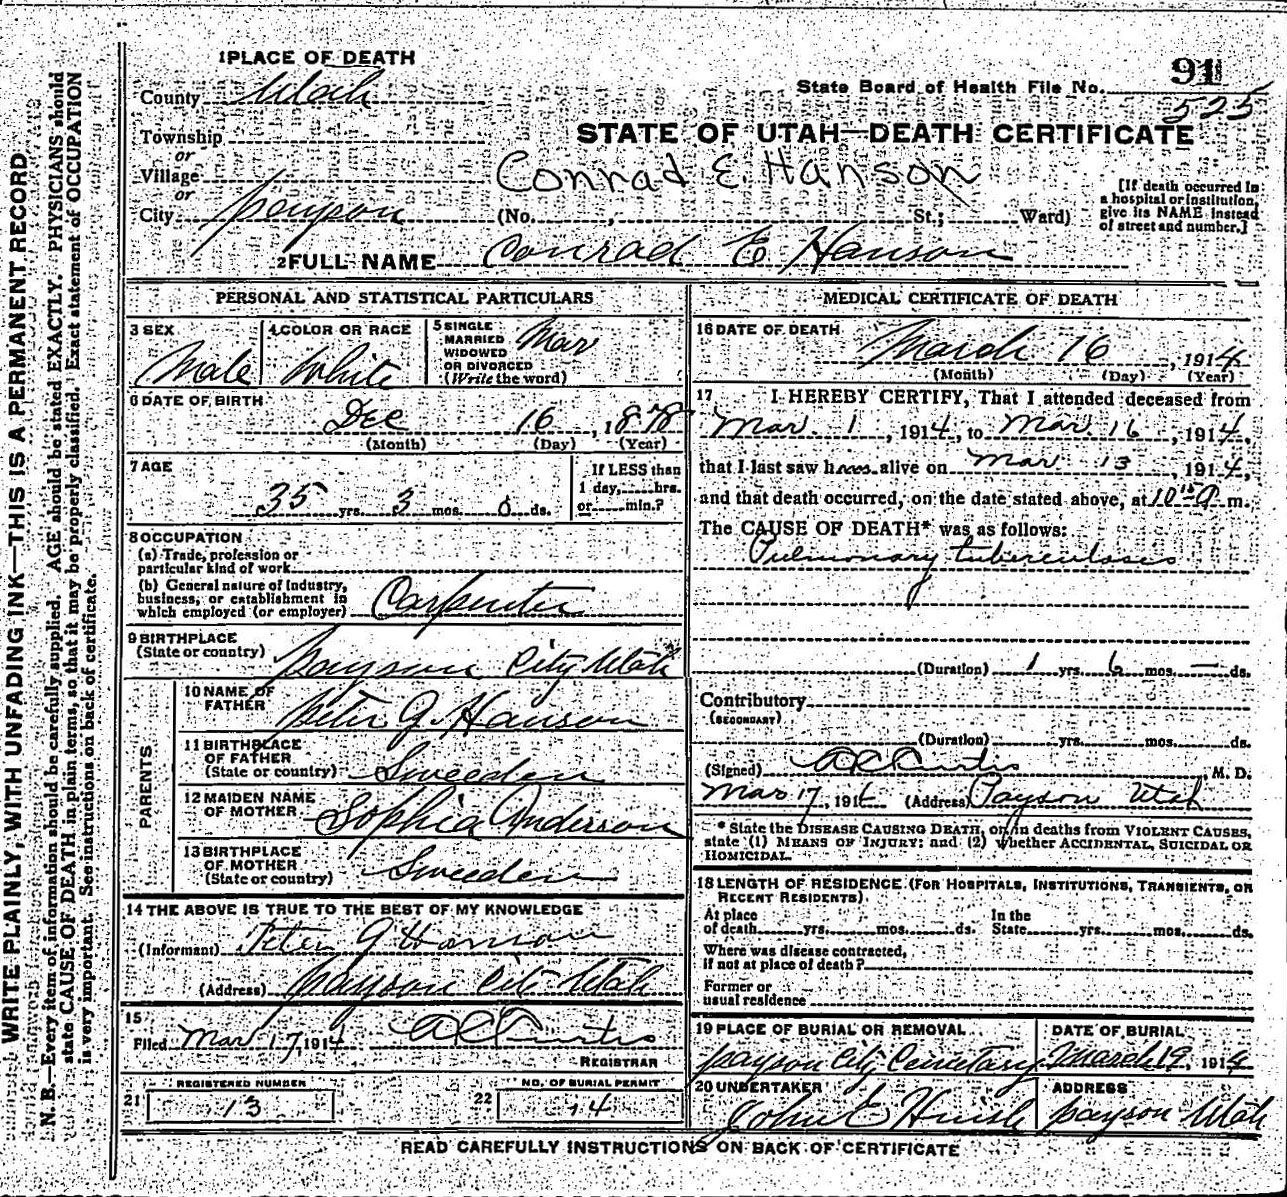 WRITE PLAINLY, WITH UNFADING INK—THIS IS A PERMANENT RECORD
N. B.—Every item of information should be carefully supplied. AGE should be stated EXACTLY. PHYSICIANS should
state CAUSE OF DEATH in plain terms, so that it may be properly classified. Exact statement of OCCUPATION
is very important. See instructions on back of certificate.
1 PLACE OF DEATH
County Utah
Township
or
Village
or
City Payson
(No. , St.; Ward)
State Board of Health File No. 91
525
STATE OF UTAH—DEATH CERTIFICATE
Conrad E. Hanson
[If death occurred in
a hospital or institution,
give its NAME instead
of street and number.]
2 FULL NAME Conrad E Hanson
PERSONAL AND STATISTICAL PARTICULARS
3 SEX
Male
4 COLOR OR RACE
White
5 SINGLE
MARRIED
WIDOWED
OR DIVORCED
(Write the word)
Mar
6 DATE OF BIRTH
Dec 16, 1878
(Month) (Day) (Year)
7 AGE
35 yrs. 3 mos. 0 ds.
If LESS than
1 day, hrs.
or min.?
8 OCCUPATION
(a) Trade, profession or
particular kind of work
(b) General nature of industry,
business, or establishment in
which employed (or employer) Carpenter
9 BIRTHPLACE
(State or country) Payson City Utah
PARENTS
10 NAME OF
FATHER Peter J. Hanson
11 BIRTHPLACE
OF FATHER
(State or country) Sweeden
12 MAIDEN NAME
OF MOTHER Sophia Anderson
13 BIRTHPLACE
OF MOTHER
(State or country) Sweeden
14 THE ABOVE IS TRUE TO THE BEST OF MY KNOWLEDGE
(Informant) Peter J Hanson
(Address) Payson City Utah
15
Filed Mar 17, 1914 A C Curtis
REGISTRAR
REGISTERED NUMBER
21 13
NO. OF BURIAL PERMIT
22 14
MEDICAL CERTIFICATE OF DEATH
16 DATE OF DEATH
March 16, 1914
(Month) (Day) (Year)
17 I HEREBY CERTIFY, That I attended deceased from
Mar. 1, 1914, to Mar. 16, 1914,
that I last saw h alive on Mar 13, 1914,
and that death occurred, on the date stated above, at 10 15 m.
The CAUSE OF DEATH* was as follows:
Pulmonary tuberculosis
(Duration) 1 yrs. 6 mos. — ds.
Contributory
(SECONDARY)
(Duration) yrs. mos. ds.
(Signed) A C Curtis M. D.
Mar 17, 1914 (Address) Payson Utah
* State the DISEASE CAUSING DEATH, or, in deaths from VIOLENT CAUSES,
state (1) MEANS OF INJURY; and (2) whether ACCIDENTAL, SUICIDAL OR
HOMICIDAL.
18 LENGTH OF RESIDENCE (FOR HOSPITALS, INSTITUTIONS, TRANSIENTS, OR
RECENT RESIDENTS).
At place
of death yrs. mos. ds.
In the
State yrs. mos. ds.
Where was disease contracted,
if not at place of death?
Former or
usual residence
19 PLACE OF BURIAL OR REMOVAL
Payson City Cemetary
DATE OF BURIAL
March 19, 1914
20 UNDERTAKER
John E Huish
ADDRESS
Payson Utah
READ CAREFULLY INSTRUCTIONS ON BACK OF CERTIFICATE